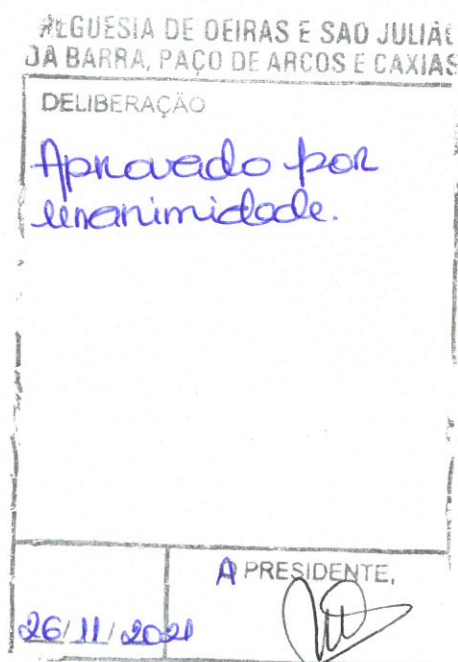 REGUESIA DE OEIRAS E SAO JULIÃO
DA BARRA, PAÇO DE ARCOS E CAXIAS
DELIBERAÇÃO
Aprovado por
unanimidade.
A PRESIDENTE,
26/11/2021